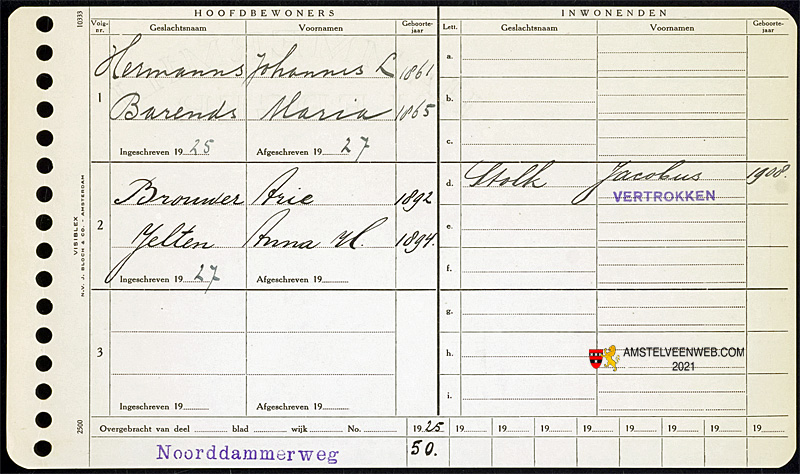 10333
HOOFDBEWONERS
INWONENDEN
Volg-nr. Geslachtsnaam Voornamen Geboorte-jaar Lett. Geslachtsnaam Voornamen Geboorte-jaar
1
Hermanns Johannes L 1861
Barends Maria 1865
Ingeschreven 1925 Afgeschreven 1927
a.
b.
c.
2
Brouwer Arie 1892
Jelten Anna H. 1894.
Ingeschreven 1927 Afgeschreven 19
d. Stolk Jacobus 1908.
VERTROKKEN
e.
f.
3
Ingeschreven 19 Afgeschreven 19
g.
h.
i.
AMSTELVEENWEB.COM
2021
VISIBLEX
N.V. J. BLOCH & CO. - AMSTERDAM
2500
Overgebracht van deel blad wijk No. 1925. 19 19 19 19 19 19 19
Noorddammerweg 50.